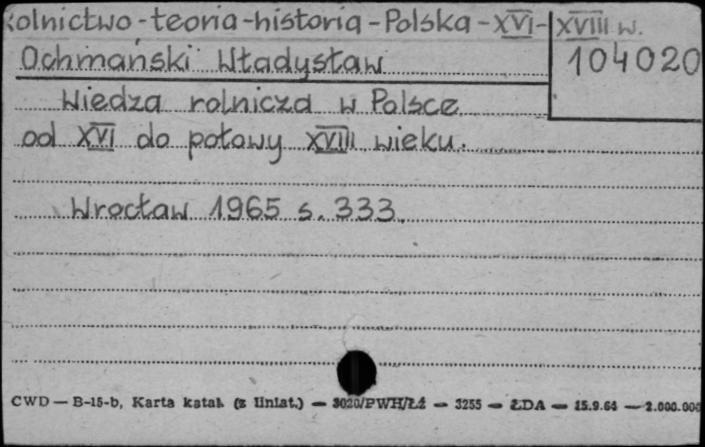 Rolnictwo-teoria-historia-Polska-XVI-XVIII w.
Ochmański Władysław 104020
Wiedza rolnicza w Polsce
od XVI do połowy XVIII wieku.
Wrocław 1965 s. 333.
CWD — B-15-b, Karta katal. (z liniat.) — 3020/PWH/Łż — 3255 — ŁDA — 15.9.64 — 2.000.000